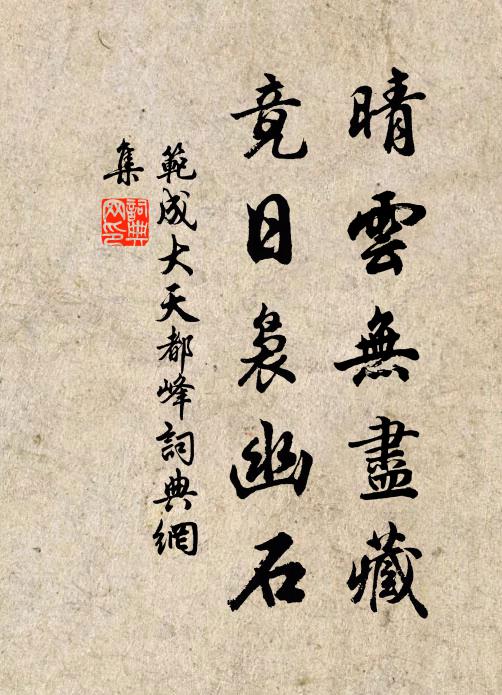 晴雲無盡藏
竟日裊幽石
範成大天都峰詞典網
集
詞典
網印